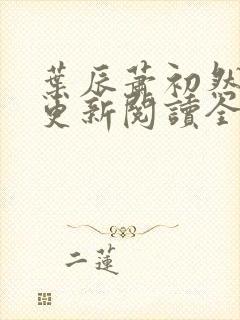 葉辰蕭初然
更新閱讀全
二蓮